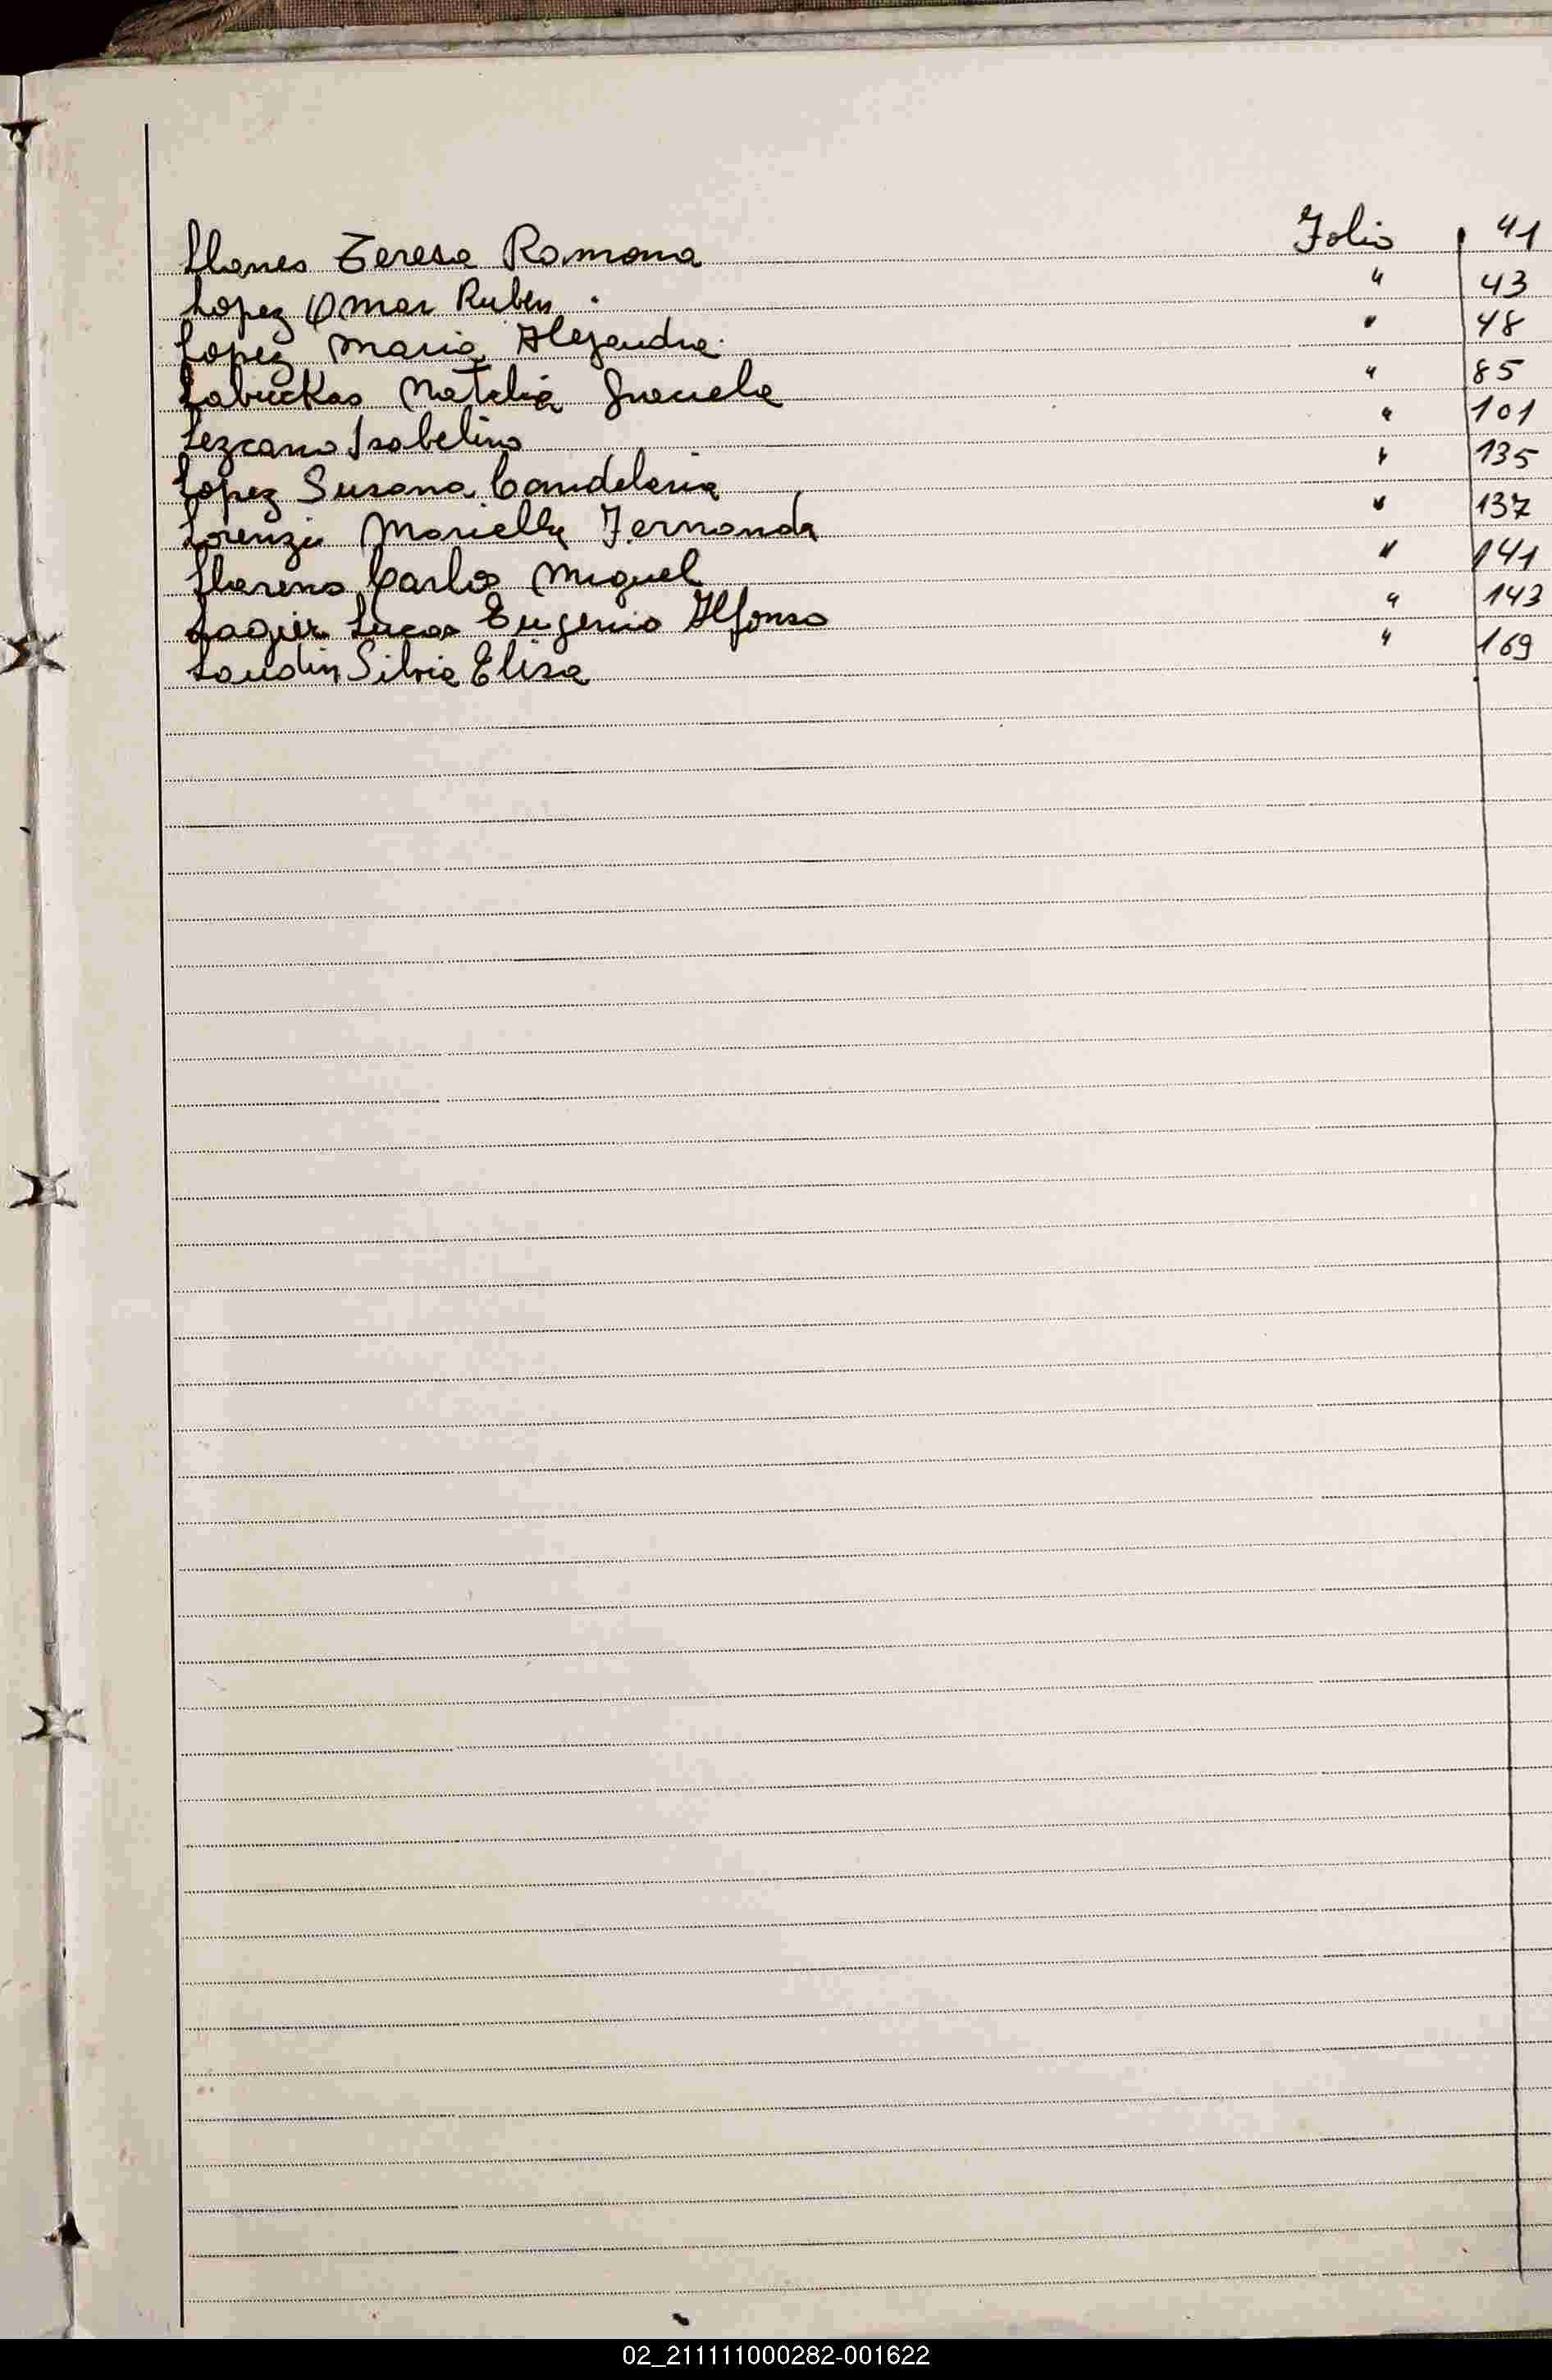 Llanes Teresa Ramona Folio 41
Lopez Omar Ruben. " 43
Lopez Maria Alejandra. " 48
Labuckas Natalia Graciela " 85
Lezcano Isabelino " 101
Lopez Susana Candelaria " 135
Lorenzi Mariella Fernanda " 137
Llarens Carlos Miguel " 141
Lagier Lucas Eugenio Alfonso " 143
Landin Silvia Elisa " 169
02_211111000282-001622